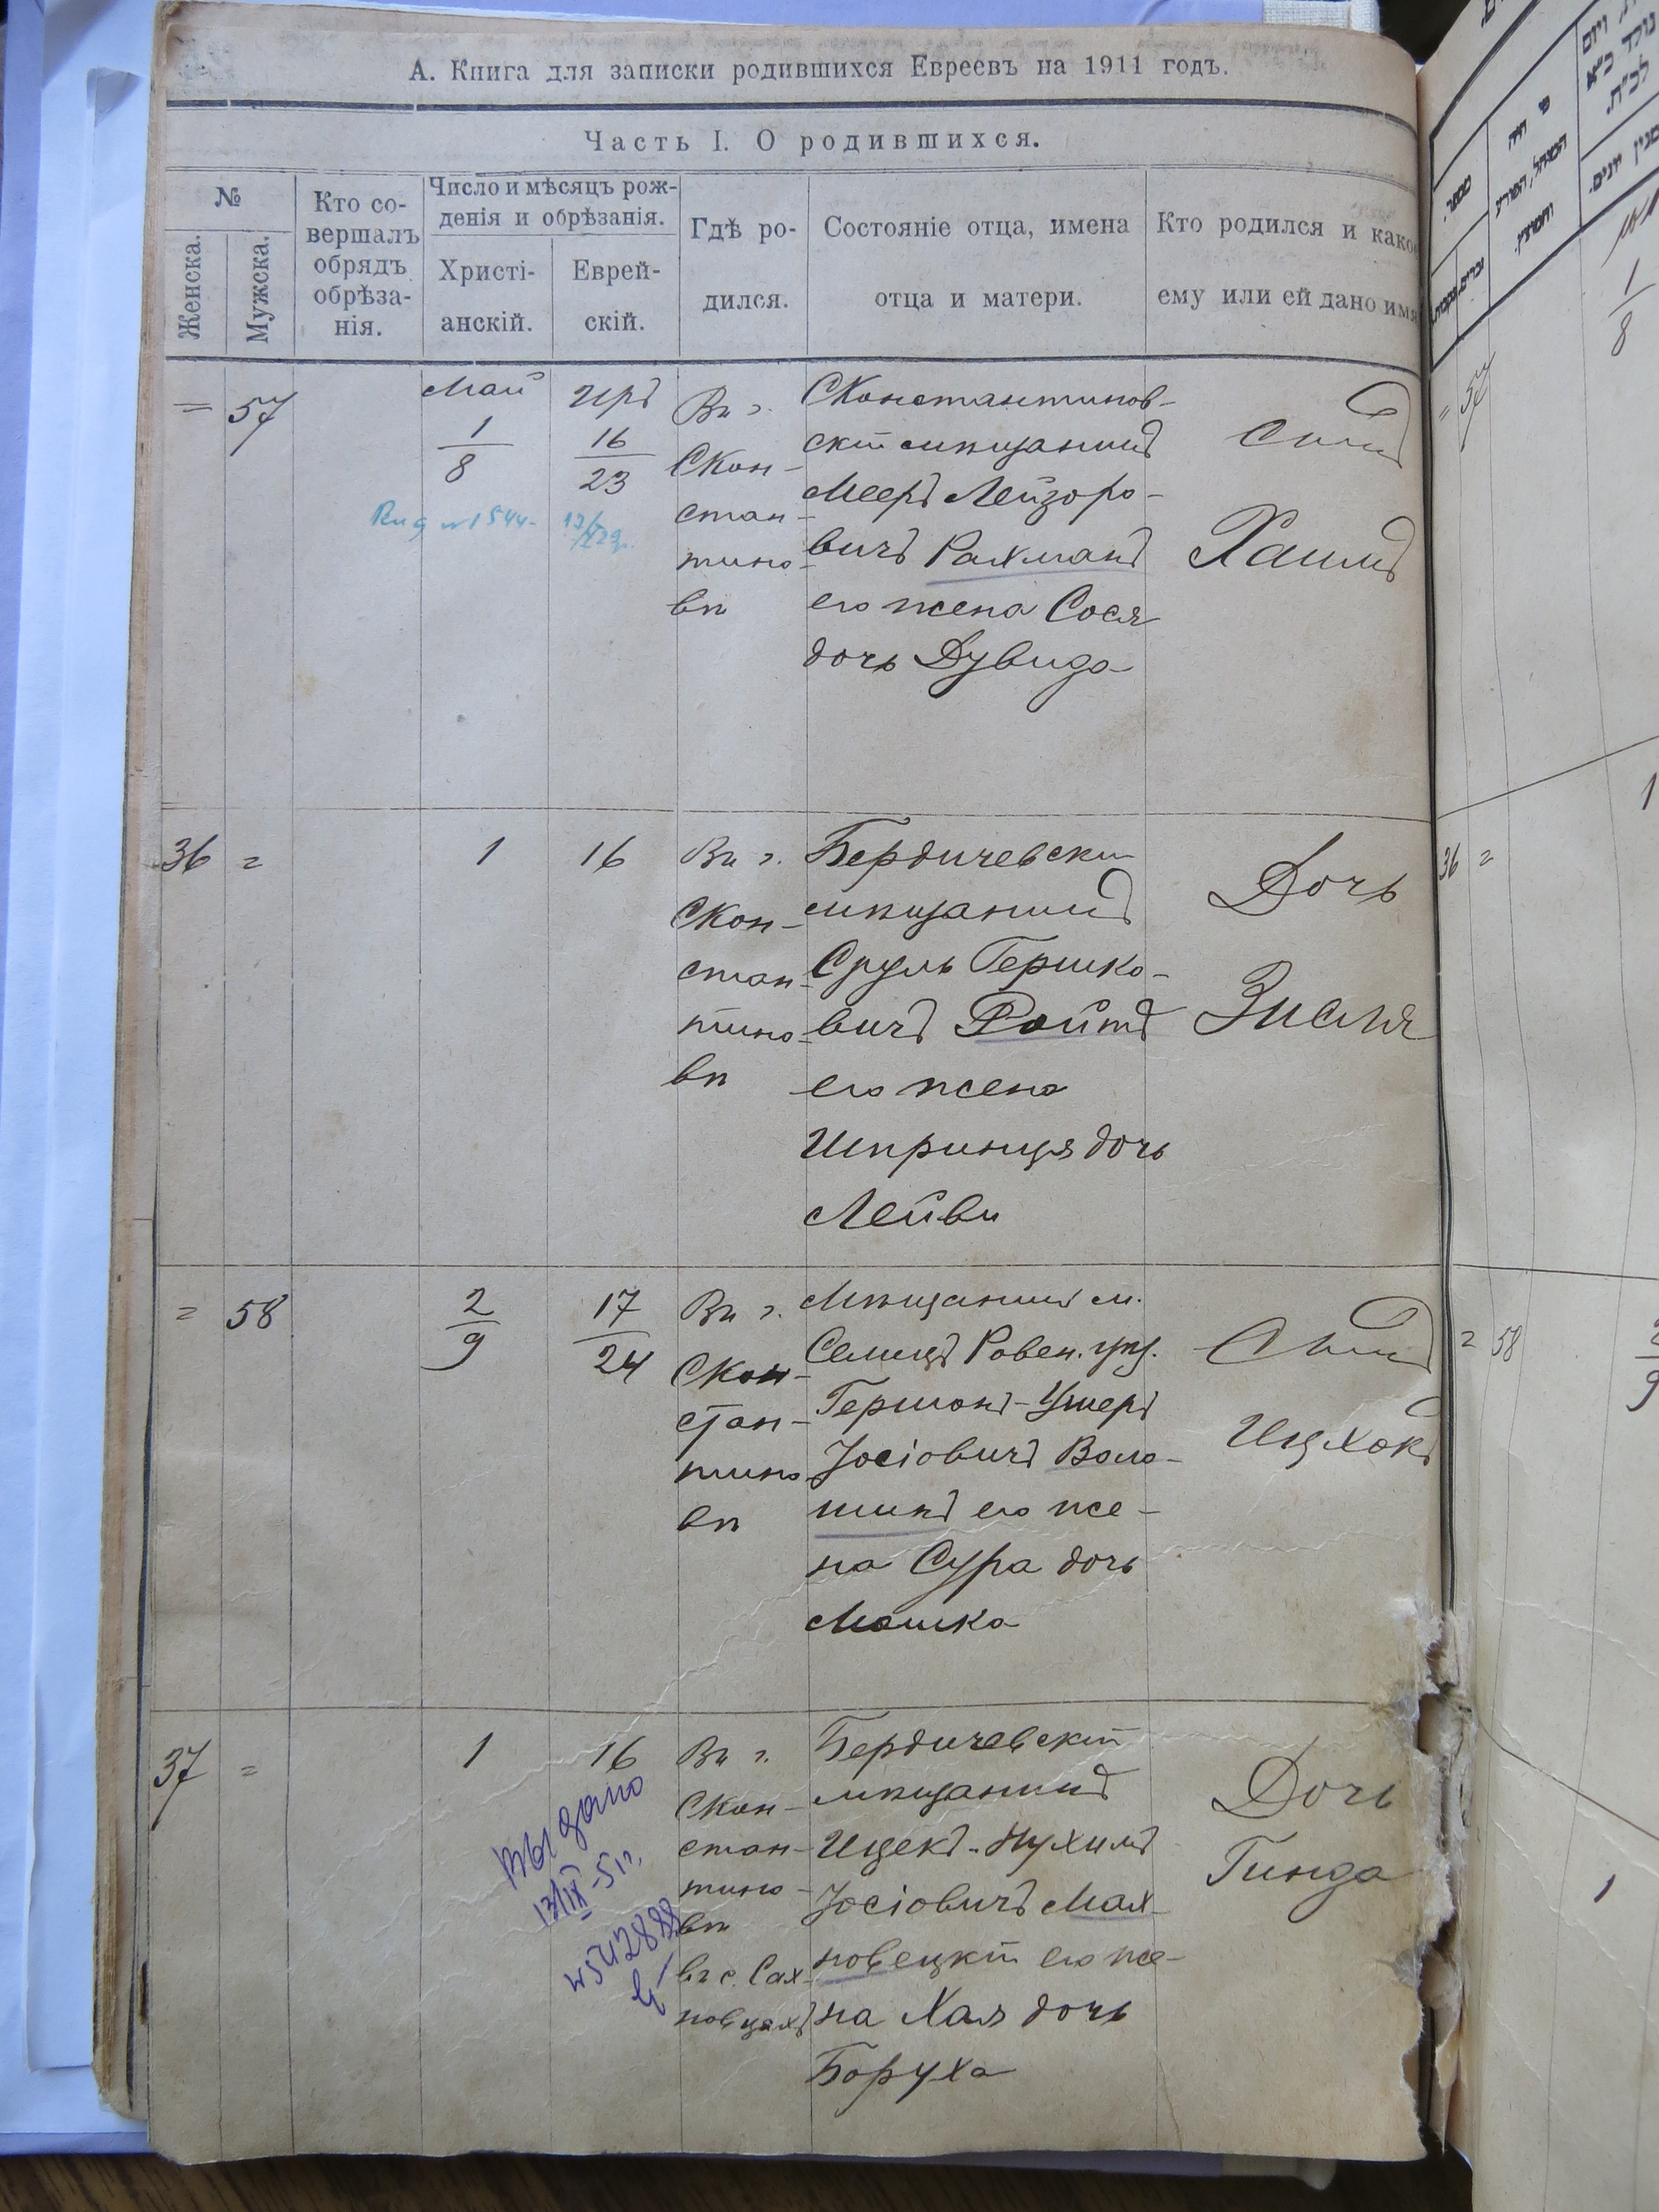 А. Книга для записки родившихся Евреевъ на 1911 годъ.
Часть I. О родившихся.
№
Женска.
Мужска.
Кто со-
вершалъ
обрядъ
обрѣза-
нія.
Число и мѣсяцъ рож-
денія и обрѣзанія.
Христі-
анскій.
Еврей-
скій.
Гдѣ ро-
дился.
Состояніе отца, имена
отца и матери.
Кто родился и како
ему или ей дано имя
= 57
Май
1
8
Иръ
16
23
Въ г.
СКон-
стан-
тино-
вѣ
СКонстантинов-
скій мѣщанинъ
Мееръ Лейзоро-
вичъ Рахманъ
его жена Сося
дочь Дувида
Сынъ
Хаимъ
36 =
1
16
Въ г.
СКон-
стан-
тино-
вѣ
Бердичевскій
мѣщанинъ
Сруль Гершко-
вичъ Ройтъ
его жена
Шпринця дочь
Лейви
Дочь
Зисля
= 58
2
9
17
24
Въ г.
СКон-
стан-
тино
вѣ
Мѣщанинъ м.
Ровен. уѣз.
Гершонъ-Ушеръ
Іосіовичъ Воло-
шинъ его же-
на Сура дочь
Мошка
Сынъ
Ицхокъ
37 =
1
16
Выдано
13/IX-51г.
Въ г.
СКон-
стан-
тино-
вѣ
въ с. Сах-
новцахъ
Бердичевскій
мѣщанинъ
Ицекъ-Нухимъ
Іосіовичъ Мах-
новецкій его же-
на Хая дочь
Боруха
Дочь
Гинда
= 57
1
8
36 =
1
= 58
2
9
1